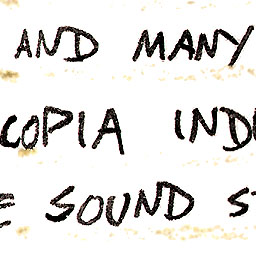 AND MANY
COPIA IND
E SOUND S